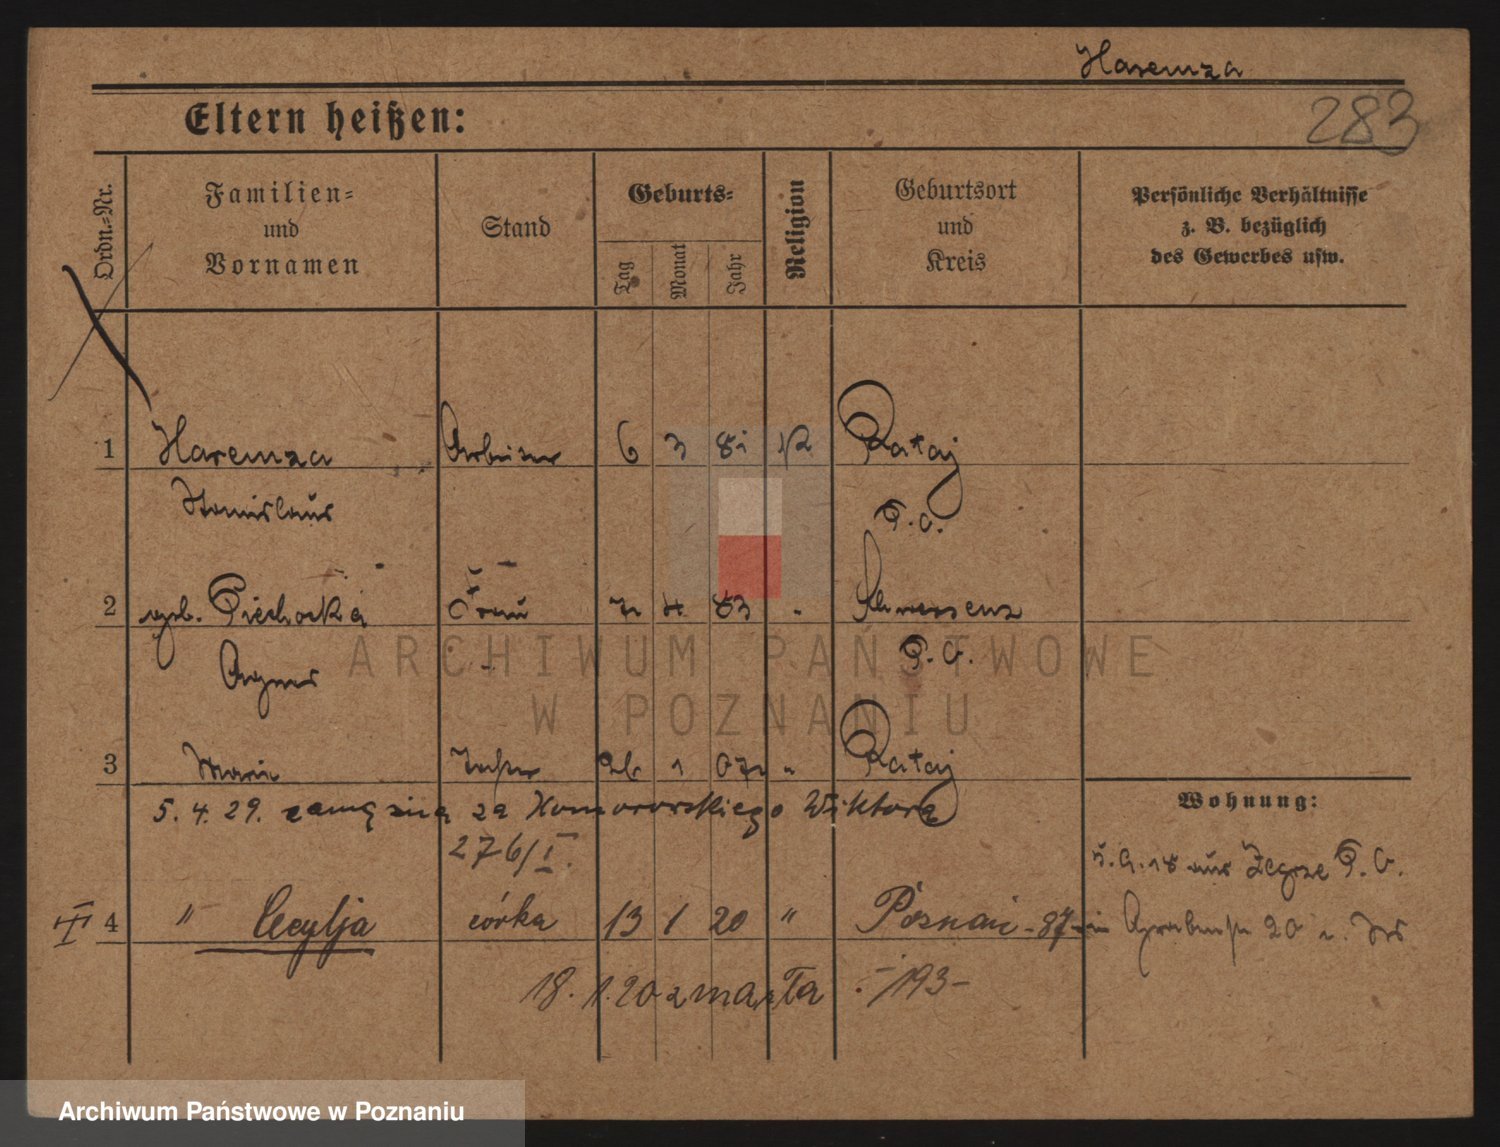 Haremza
283
Eltern heißen:
Ordn.-Nr.
Familien-
und
Vornamen
Stand
Geburts-
Tag
Monat
Jahr
Religion
Geburtsort
und
Kreis
Persönliche Verhältnisse
z. B. bezüglich
des Gewerbes usw.
1 Haremza Arbeiter 6 3 81 K Rataj
Stanislaus P. O.
2 geb. Piechocka Frau 4 83 " Schwersenz
Agnes P. O.
3 Marie Tochter 26 1 07 " Rataj
5. 4. 29. zamężna za Komorowskiego Wiktora
276/I.
Wohnung:
18 aus Zegrze P. O.
III 4 " Cecylja córka 13 1 20 " Poznań - 87 - Grabenstr 20
18. 1. 20 zmarła 193
ARCHIWUM PAŃSTWOWE
W POZNANIU
Archiwum Państwowe w Poznaniu